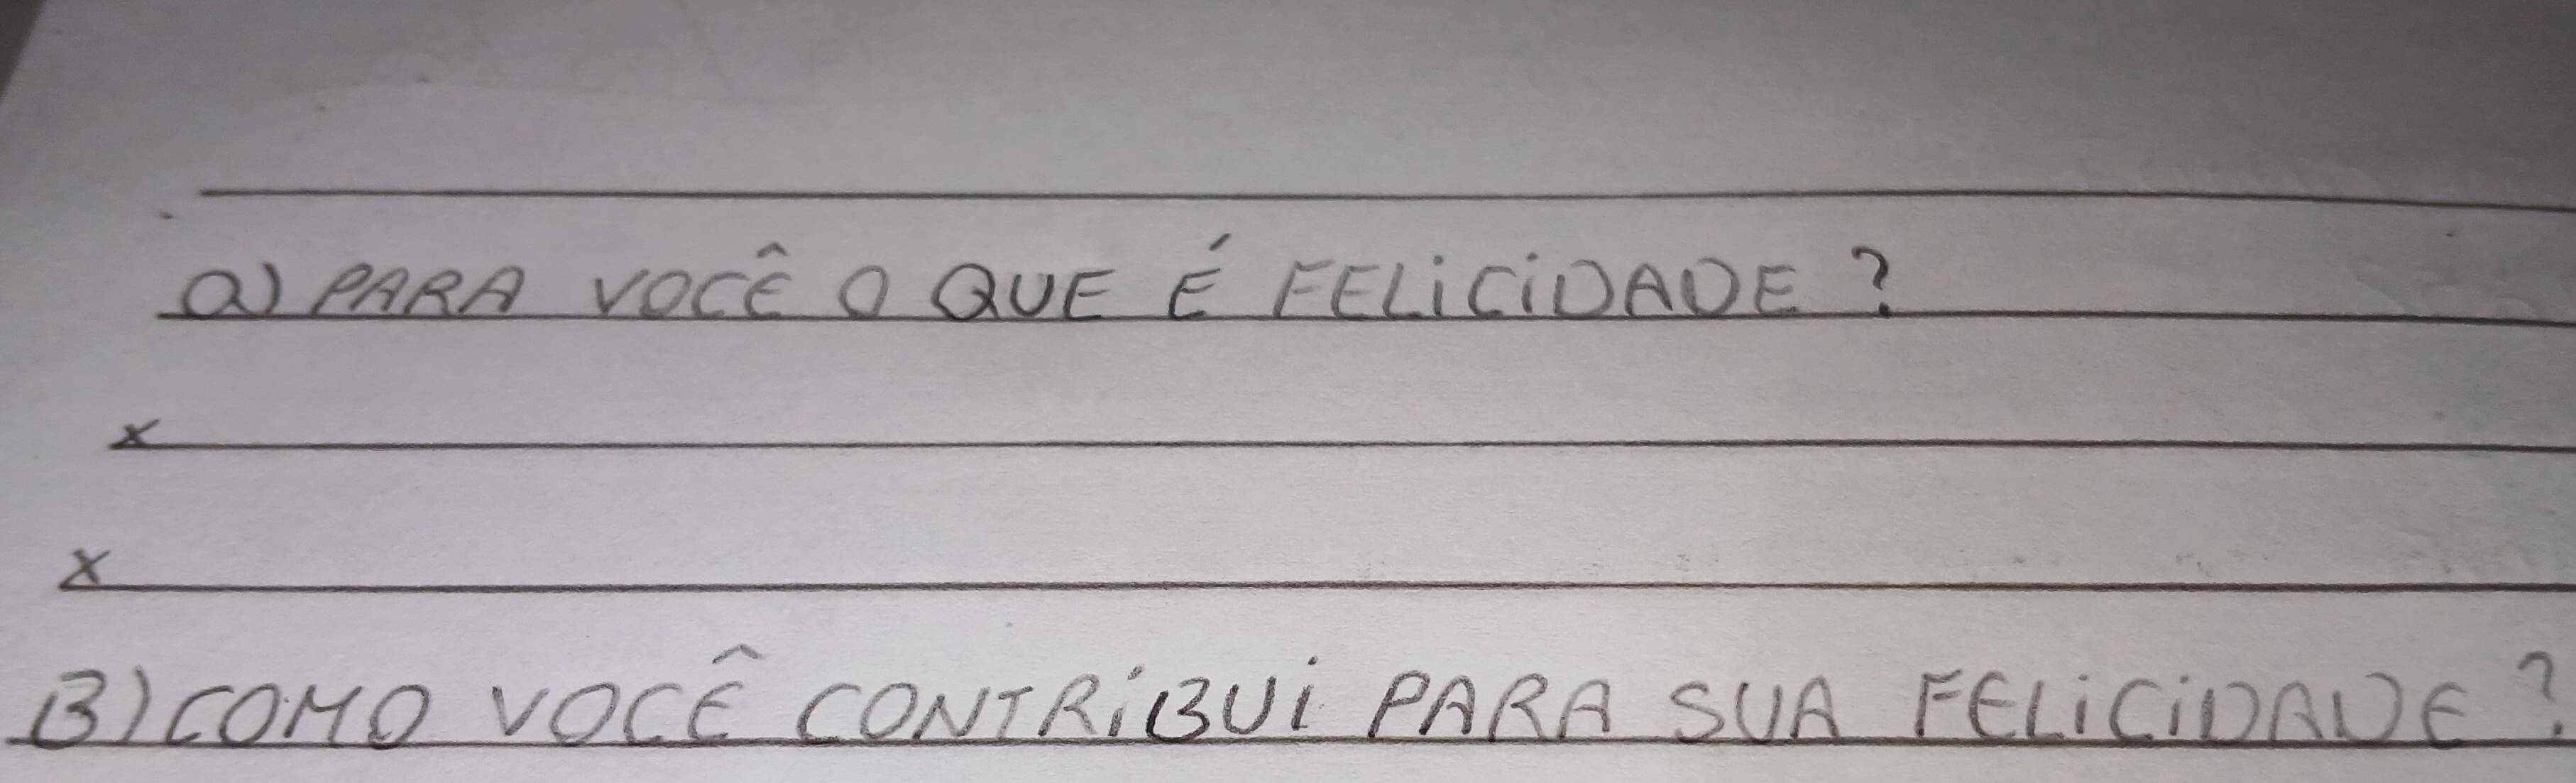 a) PARA VOCÊ O QUE É FELiCiDADE ?
x
x
B) COMO VOCÊ CONTRiBUi PARA SUA FELiCiDADE ?